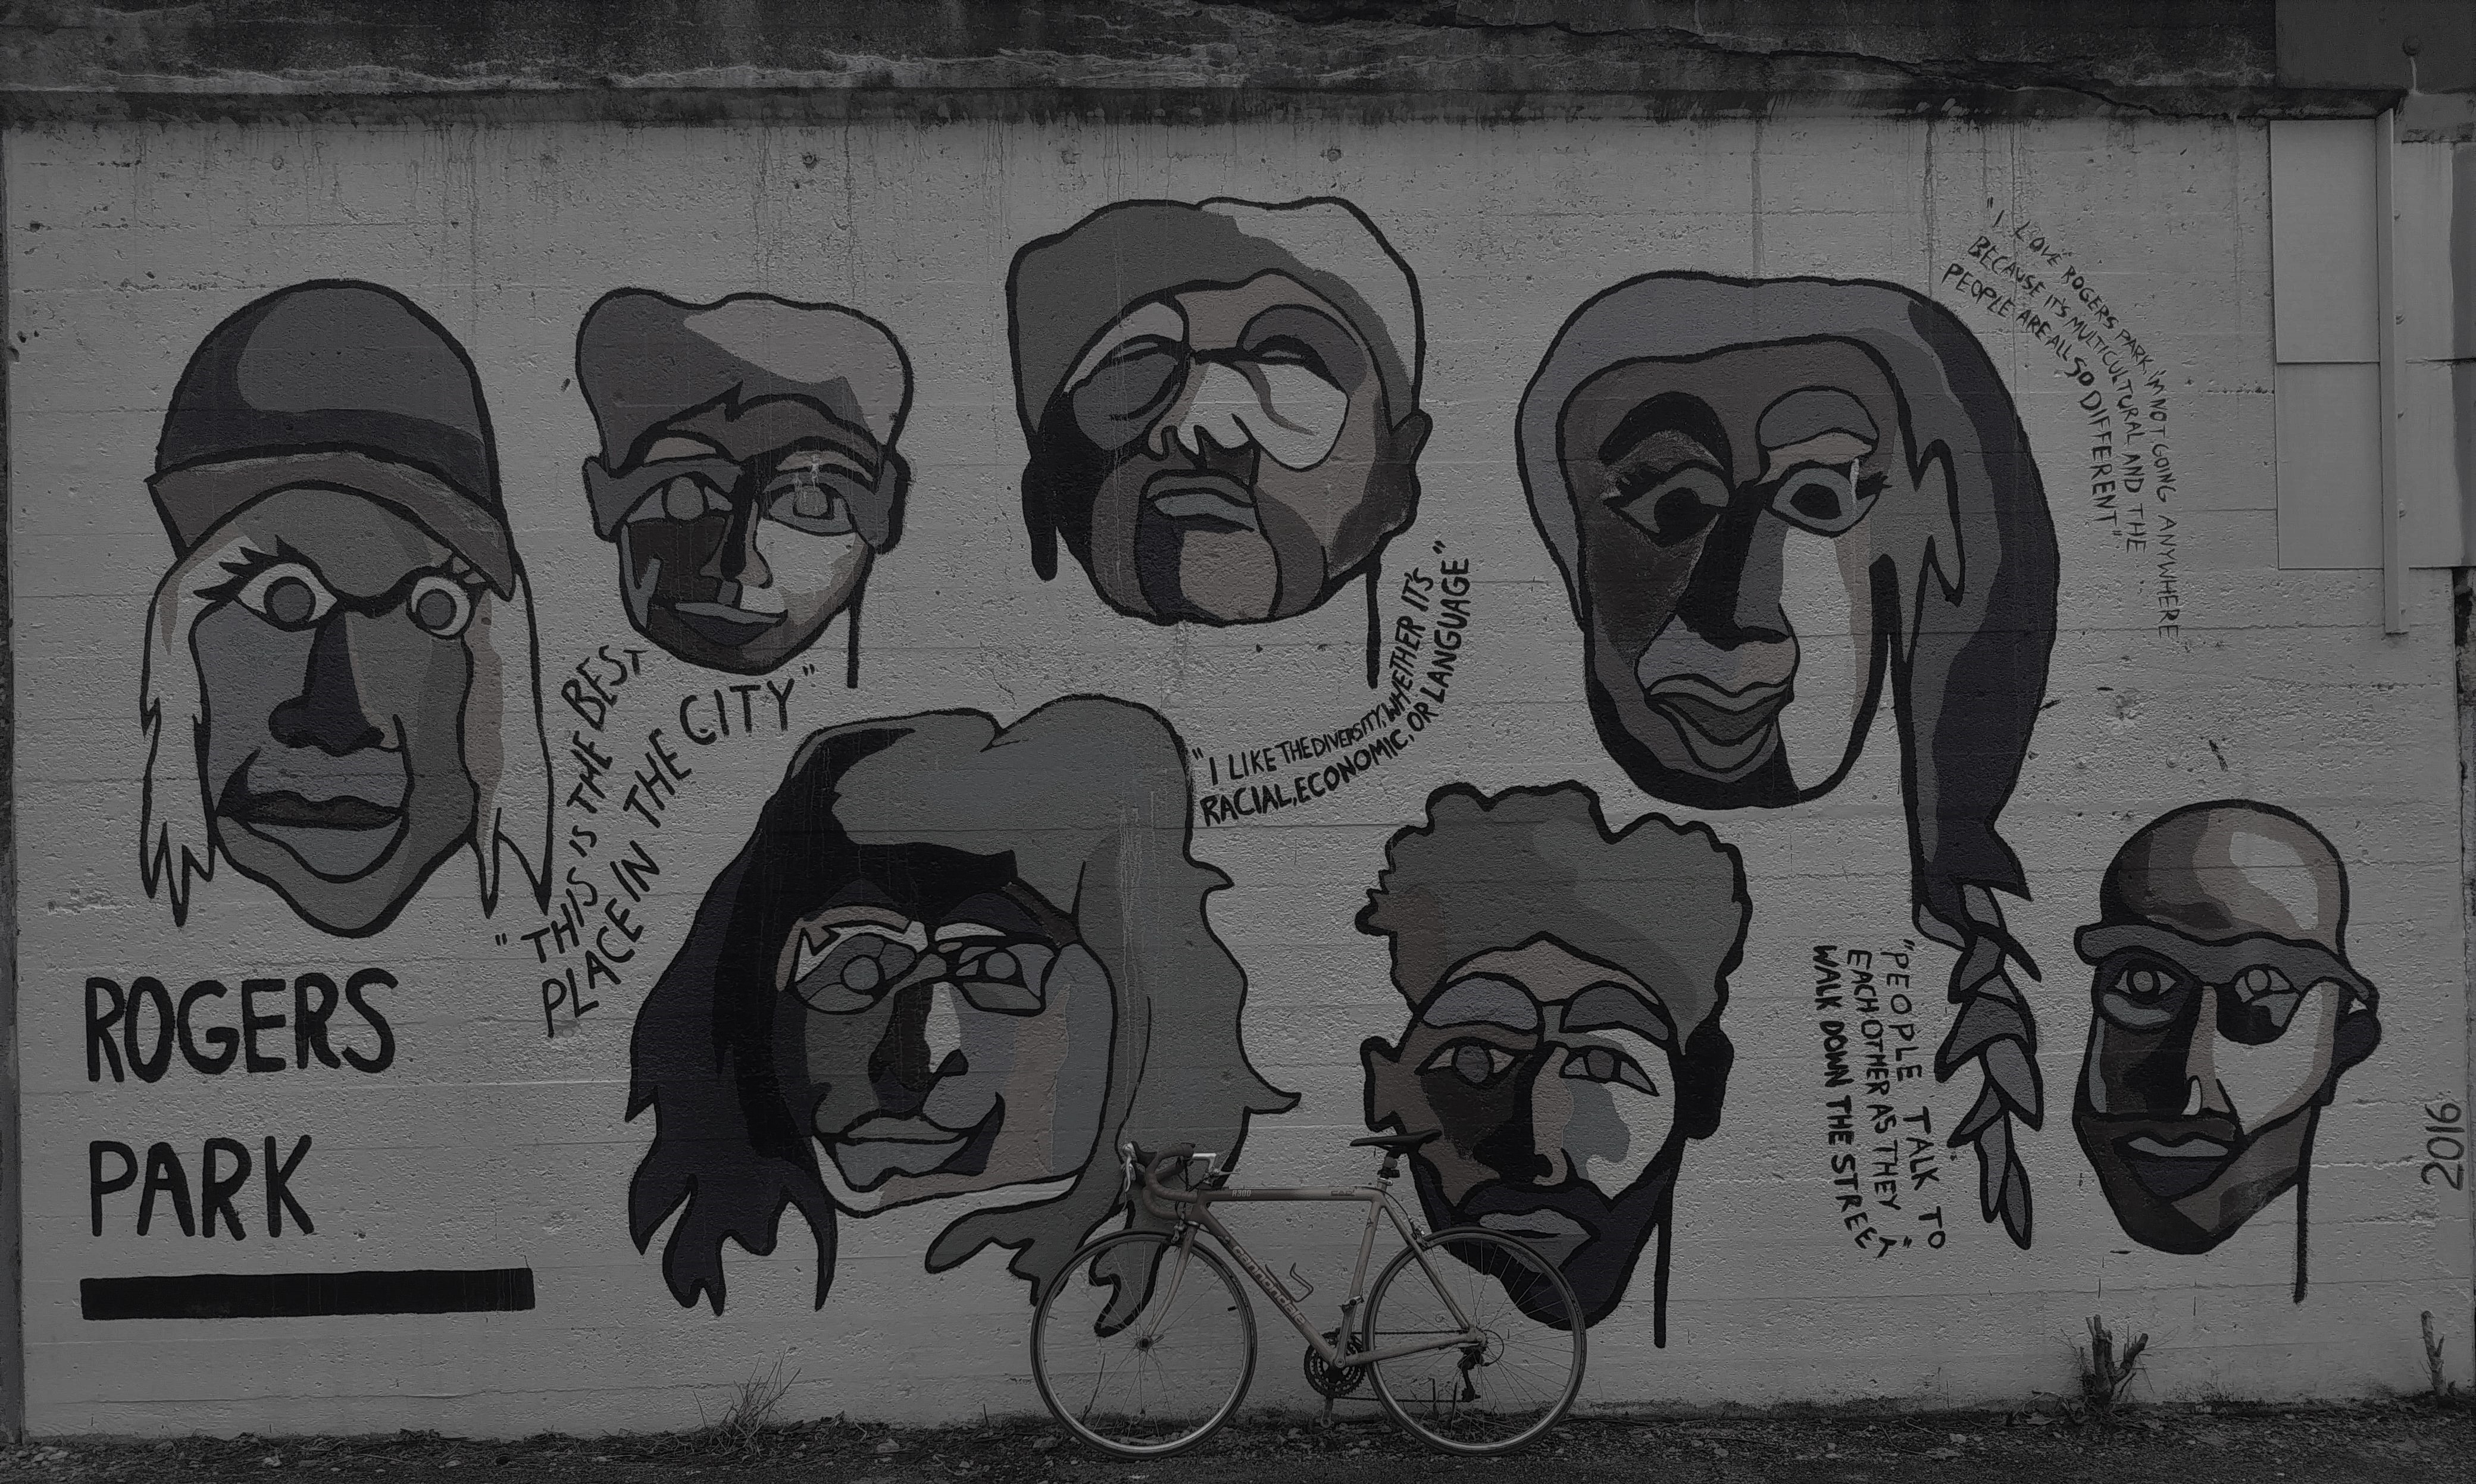 ROGERS
PARK
"THIS IS THE BEST
PLACE IN THE CITY"
"I LIKE THE DIVERSITY, WHETHER IT'S
RACIAL, ECONOMIC, OR LANGUAGE"
"I LOVE ROGERS PARK, I'M NOT GOING ANYWHERE
BECAUSE IT'S MULTICULTURAL AND THE
PEOPLE ARE ALL SO DIFFERENT"
"PEOPLE TALK TO
EACH OTHER AS THEY
WALK DOWN THE STREET"
2016
R300
cannondale